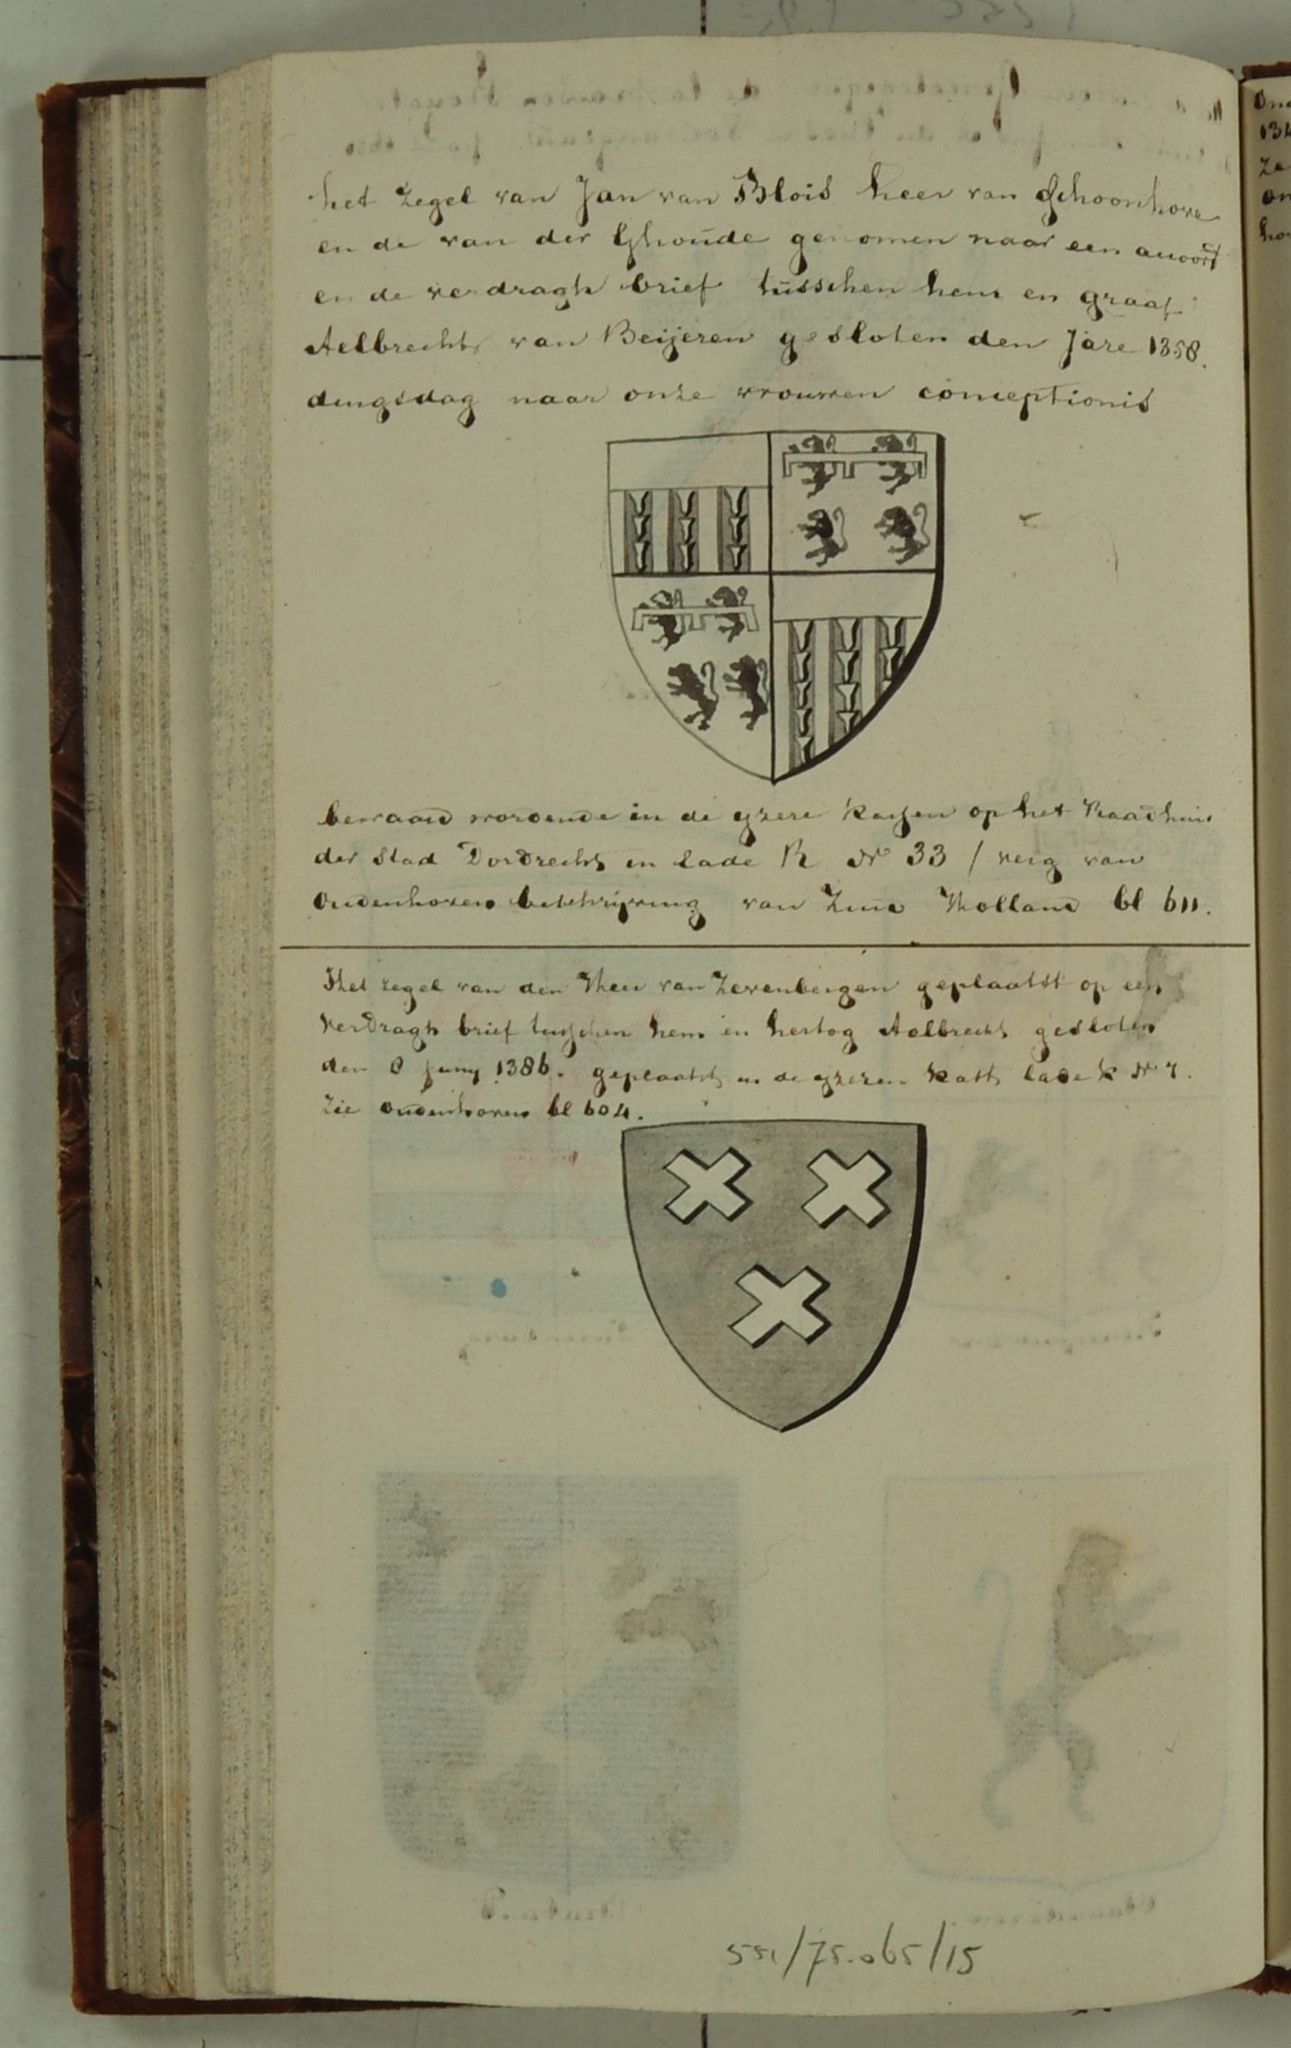 het Zegel van Jan van Blois heer van Schoonhove
en de van der Ghoude genomen naar een accoord
en de verdragh brief tusschen hem en graaf
Aelbrecht van Beijeren gesloten den Jare 1358.
dingsdag naar onze vrouwen conceptionis
bewaard wordende in de yzere kassen op het Raadhuis
der Stad Dordrecht in lade R No 33 / verg van
Oudenhoven beschrijving van Zuid Holland bl 611.
Het zegel van den Heer van Zevenbergen geplaatst op een
verdragh brief tusschen hem en hertog Aelbrecht gesloten
den 8 Juny 1386. geplaatst in de yzeren kast lade K No 7.
Zie Oudenhoven bl 604.
551/75.065/15